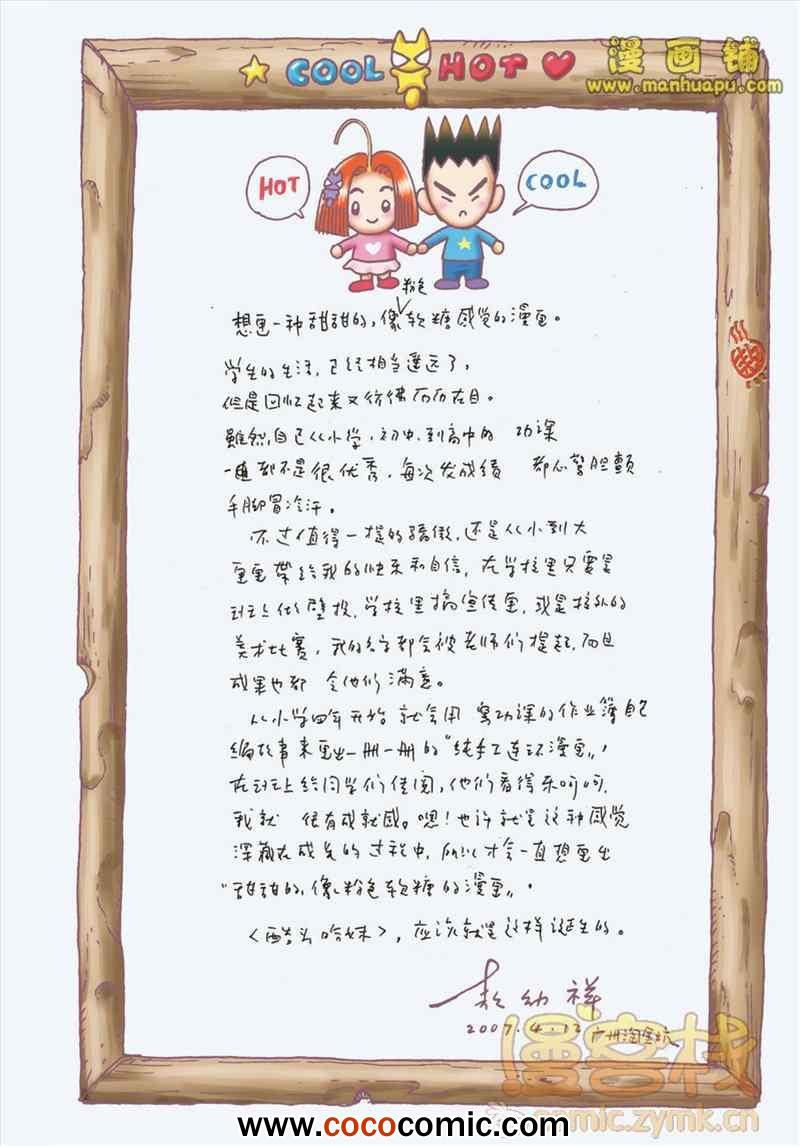 COOL HOT
漫画铺
www.manhuapu.com
HOT
COOL
想画一种甜甜的,像粉色软糖感觉的漫画。
学生的生活,已经相当遥远了,
但是回忆起来又彷彿历历在目。
雖然,自己从小学,初中,到高中的 功课
一直都不是很优秀,每次发成绩 都心驚胆顫
手脚冒冷汗。
不过值得一提的骄傲,还是从小到大
画画带给我的快乐和自信,在学校里只要是
班上做壁报,学校里搞宣传画,或是校外的
美术比賽,我的名字都会被老师们提起,而且
成果也都 令他们滿意。
从小学四年开始 就会用 寫功课的作业簿自己
编故事来画出一册一册的"纯手工连环漫画",
在班上给同学们传阅,他们看得乐呵呵,
我就 很有成就感。嗯!也许就是这种感觉
深藏在成长的过程中,所以才会一直想画出
"甜甜的,像粉色软糖的漫画"。
〈酷头哈妹〉,应该就是这样诞生的。
敖幼祥
2007.4.12 广州淘金坑
漫客栈
comic.zymk.cn
www.cococomic.com